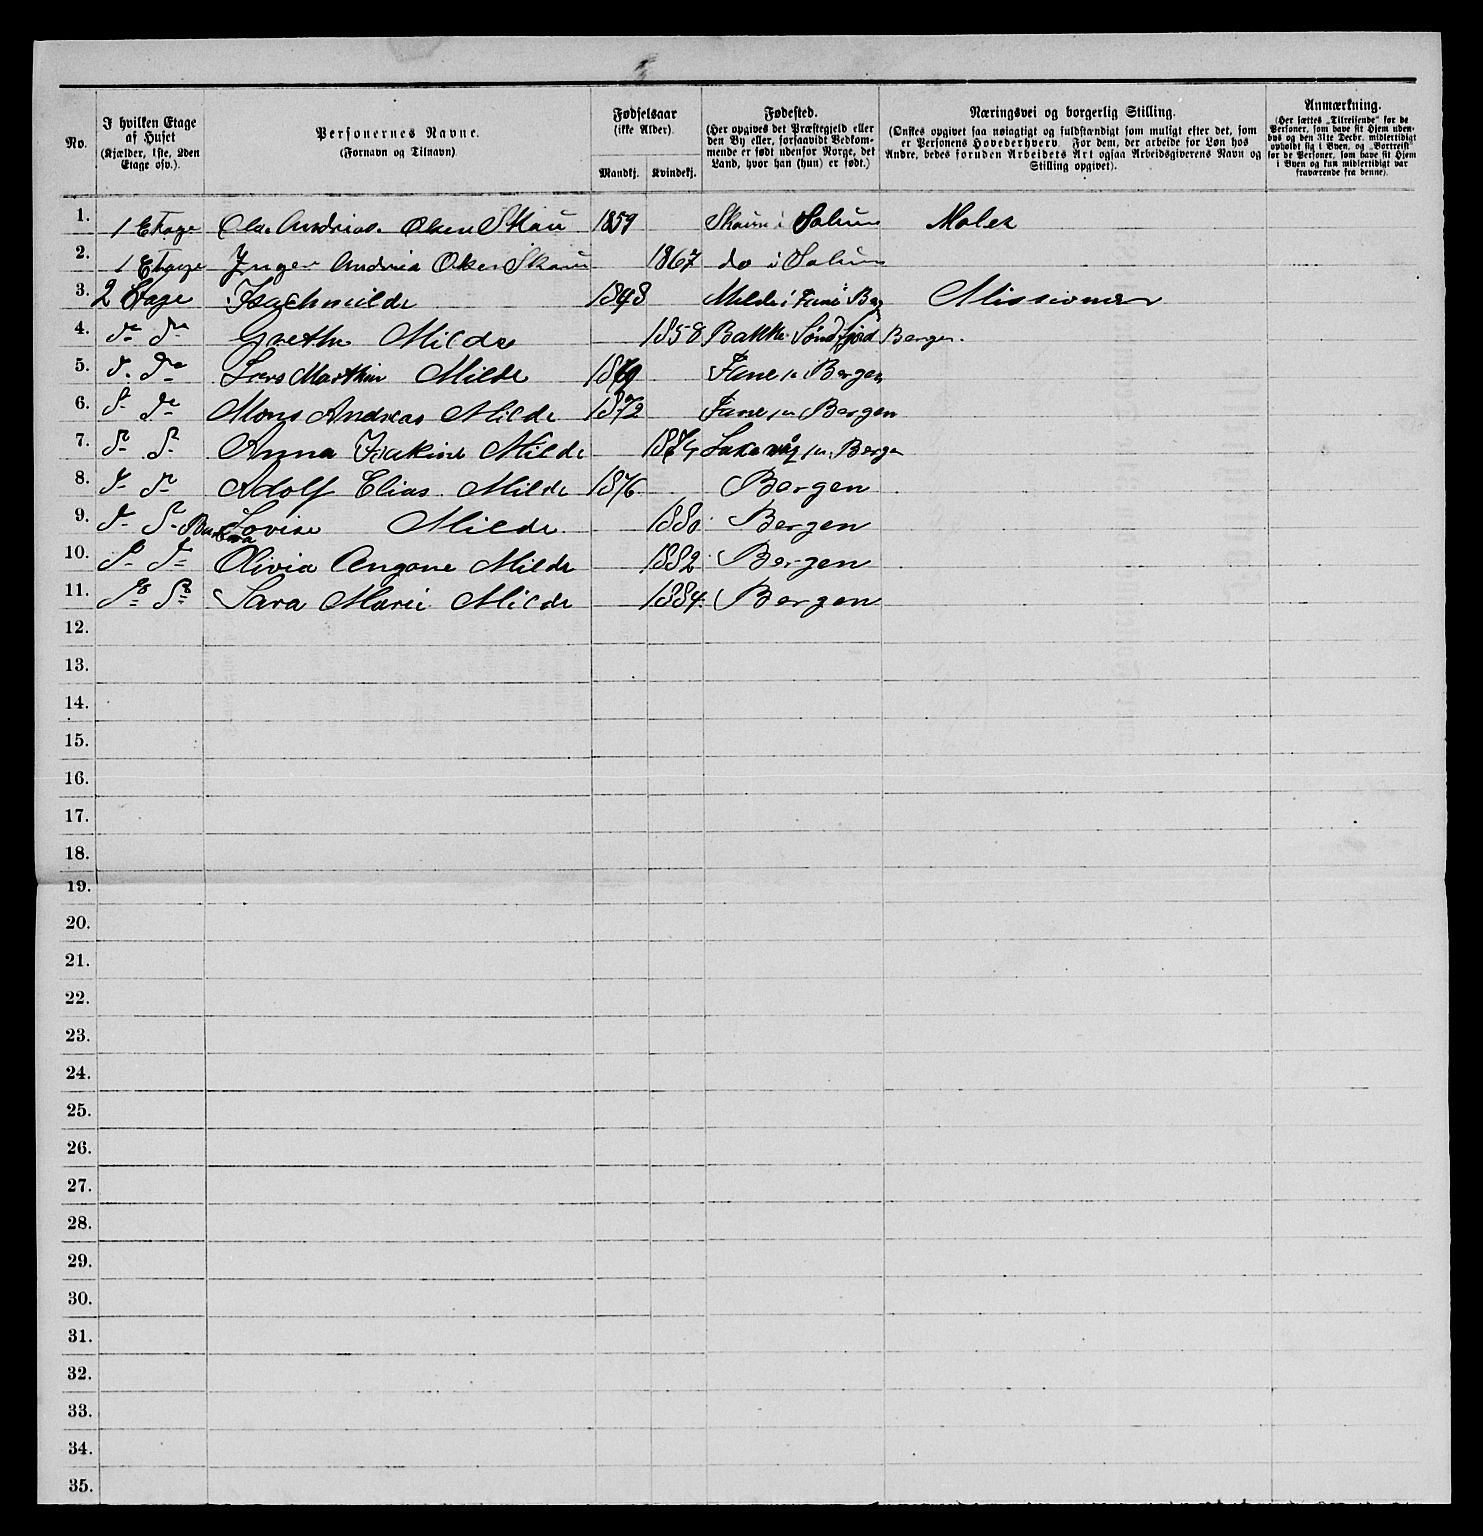 No.
I hvilken Etage
af Huset
(Kjælder, 1ste, 2den
Etage osv.).
Personernes Navne.
(Fornavn og Tilnavn)
Fødselsaar
(ikke Alder).
Mandkj. Kvindekj.
Fødested.
(Her opgives det Præstegjeld eller
den By eller, forsaavidt Vedkom-
mende er født udenfor Norge, det
Land, hvor han (hun) er født.)
Næringsvei og borgerlig Stilling.
(Ønskes opgivet saa nøiagtigt og fuldstændigt som muligt efter det, som
er Personens Hovederhverv. For dem, der arbeide for Løn hos
Andre, bedes foruden Arbeidets Art ogsaa Arbeidsgiverens Navn og
Stilling opgivet).
Anmærkning.
(Her sættes „Tilreisende“ for de
Personer, som have sit Hjem uden-
bys og den 31te Decbr. midlertidigt
opholdt sig i Byen, og „Bortreist“
for de Personer, som have sit Hjem
i Byen og kun midlertidigt var
fraværende fra denne).
1. 1 Etage Andrias Olsen Skau 1859 i Solum Maler
2. 1 Etage Inger Andrea Olsen Skau 1867 do i Solum
3. 2 Etage Milde 1848 Milde i Fane Missionær
4. do do Grethe Milde 1858 Bakke Søndfjord Bergen.
5. do do Lars Marthin Milde 1869 Fane Bergen
6. do do Mons Andreas Milde 1872 Fane Bergen
7. do do Anna Milde 1874 Laxevåg Bergen
8. do do Adolf Elias Milde 1876 Bergen
9. do do Barbara Lovise Milde 1880 Bergen
10. do do Olivia Angane Milde 1882 Bergen
11. do do Sara Marie Milde 1884 Bergen
12.
13.
14.
15.
16.
17.
18.
19.
20.
21.
22.
23.
24.
25.
26.
27.
28.
29.
30.
31.
32.
33.
34.
35.